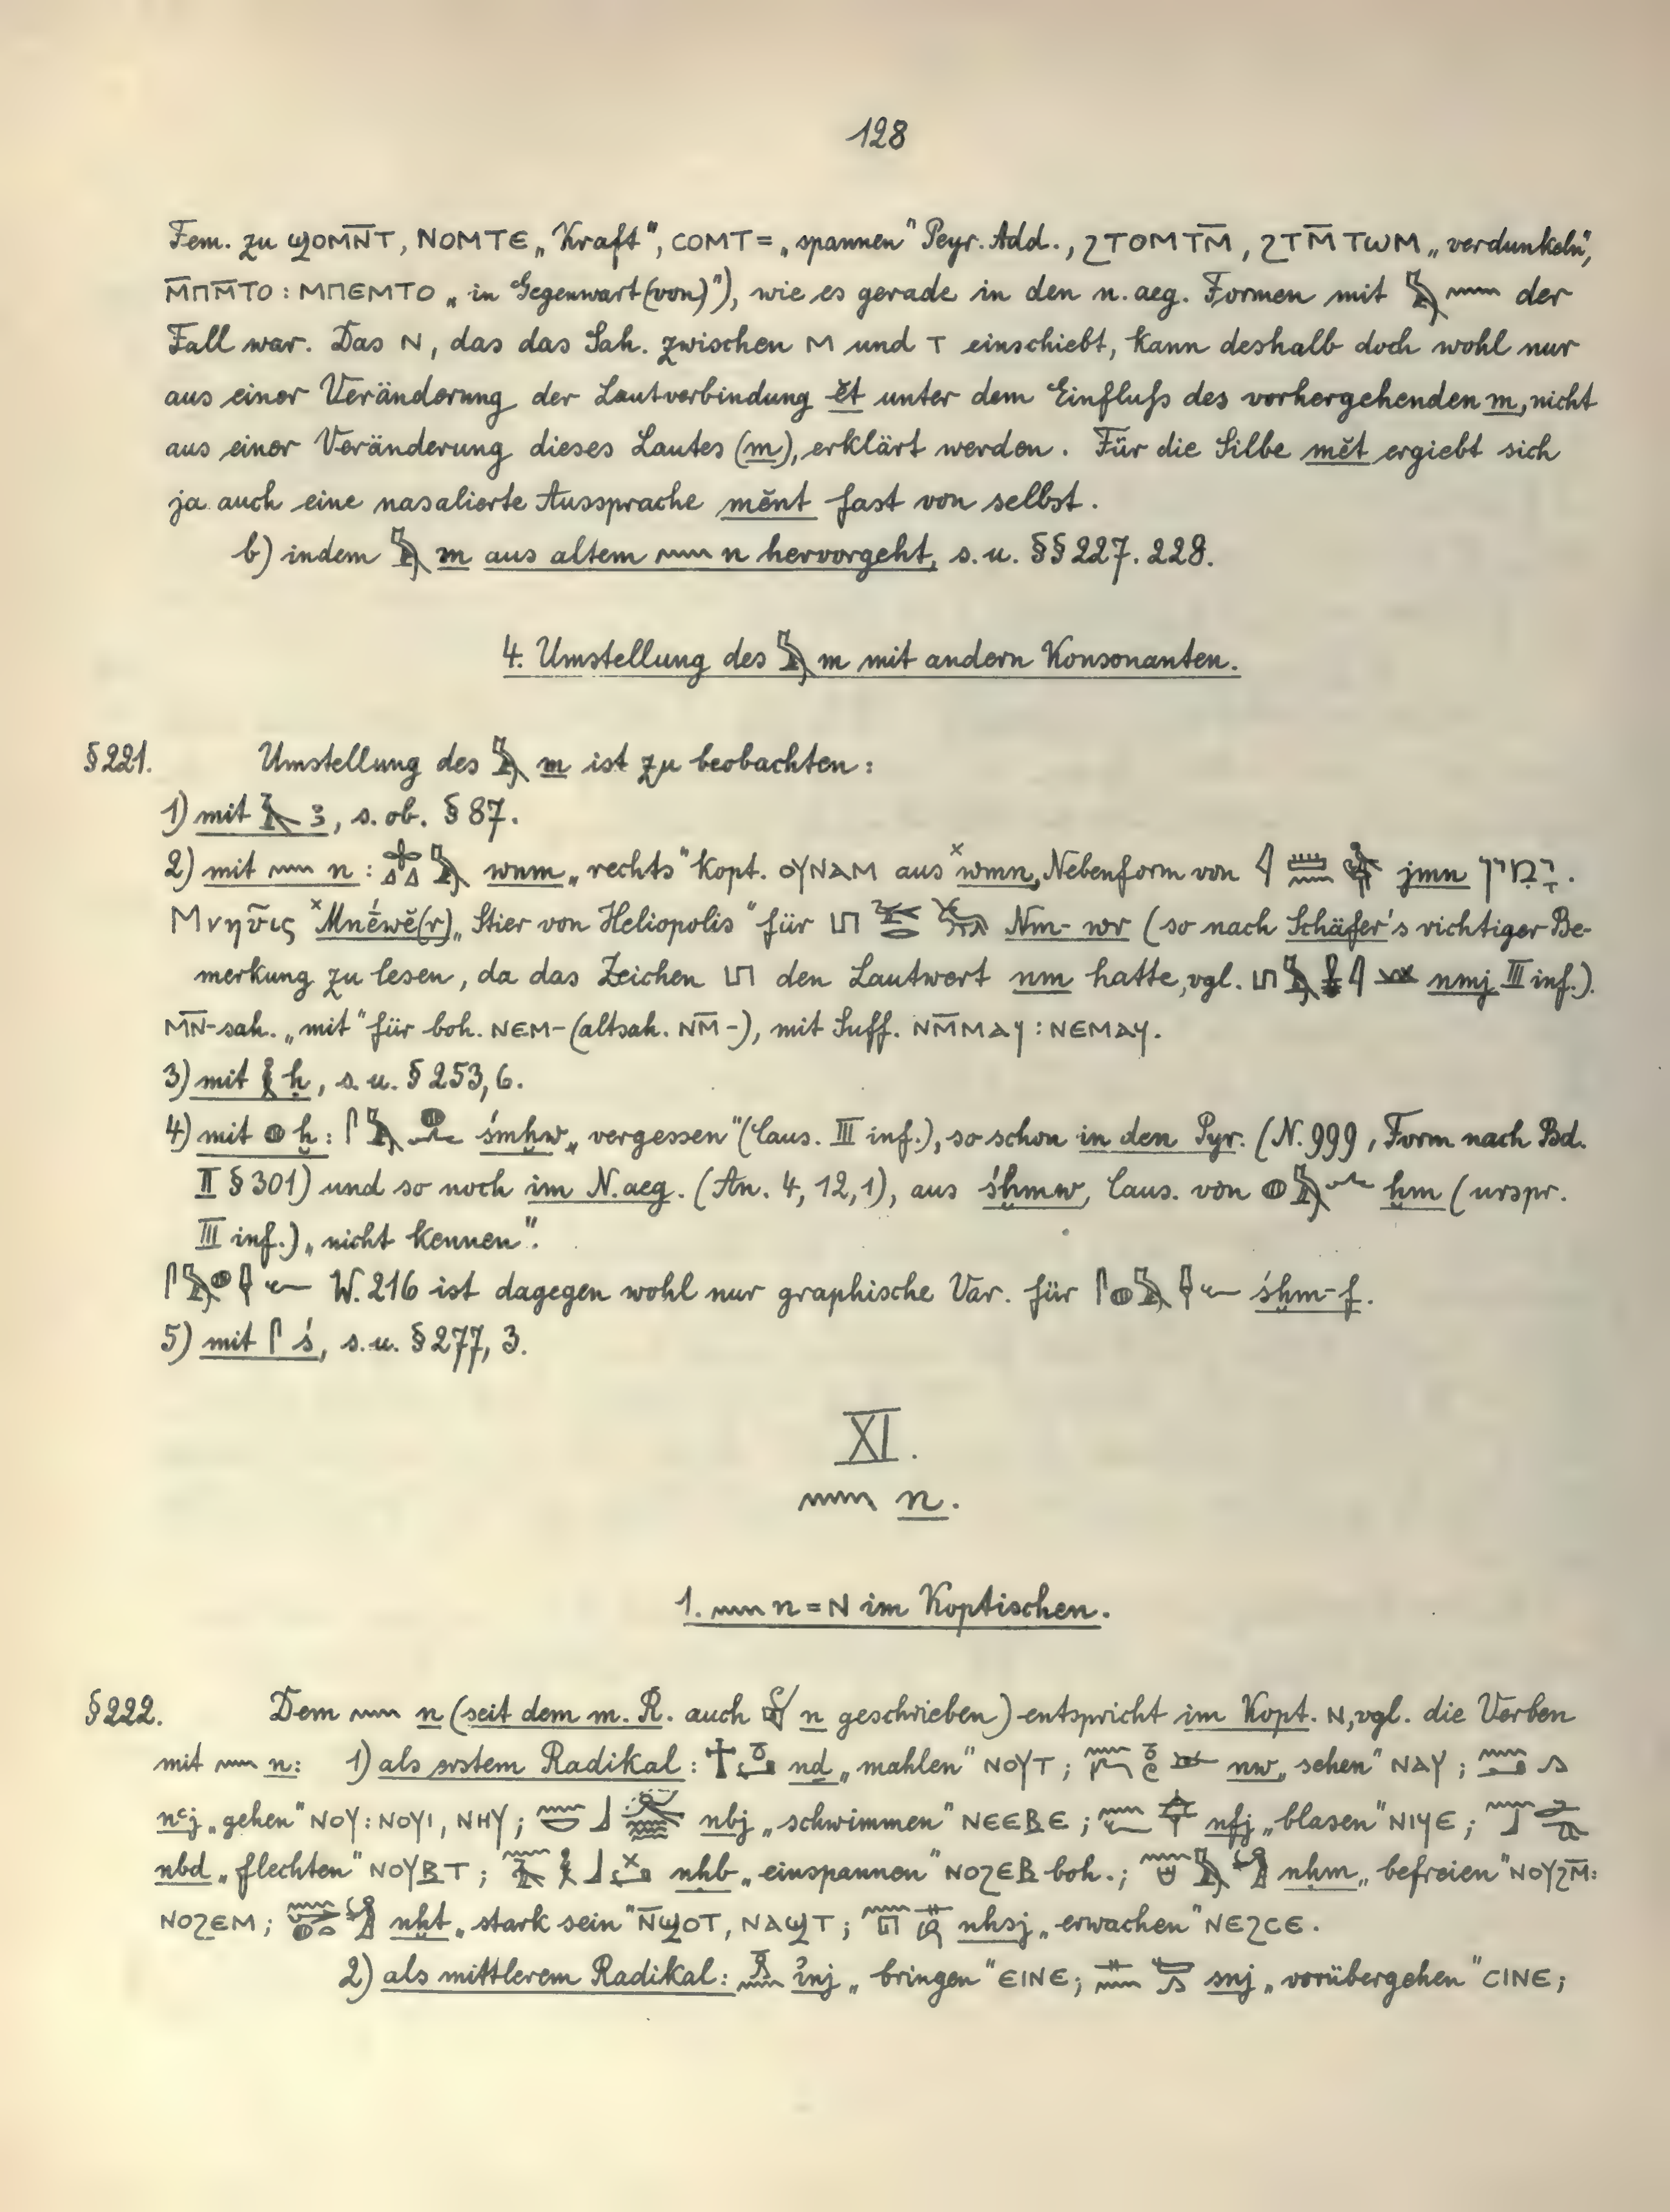 128
Fem. zu ϢΟΜN̄Τ, ΝΟΜΤΕ „Kraft“, CΟΜΤ= „spannen“ Peyr. Add., ϨΤΟΜΤM̄, ϨΤM̄ΤωΜ „verdunkeln“,
M̄ΠM̄ΤΟ : ΜΠΕΜΤΟ „in Gegenwart (von)“), wie es gerade in den n. aeg. Formen mit 𓅓 𓈖 der
Fall war. Das Ν, das das Sah. zwischen Μ und Τ einschiebt, kann deshalb doch wohl nur
aus einer Veränderung der Lautverbindung ĕt unter dem Einfluß des vorhergehenden m, nicht
aus einer Veränderung dieses Lautes (m), erklärt werden. Für die Silbe mĕt ergiebt sich
ja auch eine nasalierte Aussprache mĕnt fast von selbst.
b) indem 𓅓 m aus altem 𓈖 n hervorgeht, s. u. §§ 227. 228.
4. Umstellung des 𓅓 m mit andern Konsonanten.
§ 221. Umstellung des 𓅓 m ist zu beobachten:
1) mit 𓄿 ꜣ, s. ob. § 87.
2) mit 𓈖 n: 𓅓 wnm „rechts“ kopt. ΟΥΝΑΜ aus ˣwmn, Nebenform von 𓇋 𓏠 𓈖 jmn יָמִין.
Μνηῦις ˣMnéwĕ(r) „Stier von Heliopolis“ für Nm-wr (so nach Schäfer's richtiger Be-
merkung zu lesen, da das Zeichen den Lautwert nm hatte, vgl. nmj III inf.).
M̄N̄- sah. „mit“ für boh. ΝΕΜ- (altsah. ΝM̄-), mit Suff. ΝM̄ΜΑΥ : ΝΕΜΑΥ.
3) mit 𓎛 ḥ, s. u. § 253, 6.
4) mit 𓐍 ḫ: 𓋴 𓅓 𓐍 𓂜 śmḫw „vergessen“ (Caus. III inf.), so schon in den Pyr. (N. 999, Form nach Bd.
II § 301) und so noch im N. aeg. (An. 4, 12, 1), aus śḫmw, Caus. von 𓐍 𓅓 𓂜 ḫm (urspr.
III inf.) „nicht kennen“.
𓋴 𓅓 𓐍 𓌂 𓆑 W. 216 ist dagegen wohl nur graphische Var. für 𓋴 𓐍 𓅓 𓌂 𓆑 śḫm-f.
5) mit 𓋴 ś, s. u. § 277, 3.
XI.
𓈖 n.
1. 𓈖 n = Ν im Koptischen.
§ 222. Dem 𓈖 n (seit dem m. R. auch 𓋔 n geschrieben) entspricht im Kopt. Ν, vgl. die Verben
mit 𓈖 n: 1) als erstem Radikal: nd „mahlen“ ΝΟΥΤ; nw „sehen“ ΝΑΥ;
nꜥj „gehen“ ΝΟΥ : ΝΟΥΙ, ΝΗΥ; 𓈖 𓎟 𓃀 nbj „schwimmen“ ΝΕΕΒΕ; 𓈖 𓆑 nfj „blasen“ ΝΙϤΕ; 𓈖 𓃀 𓂧
nbd „flechten“ ΝΟΥΒΤ; 𓈖 𓎛 𓃀 nḥb „einspannen“ ΝΟϨΕΒ boh.; 𓈖 𓅓 nḥm „befreien“ ΝΟΥϨM̄:
ΝΟϨΕΜ; 𓈖 𓐍 𓏏 nḫt „stark sein“ N̄ϢΟΤ, ΝΑϢΤ; 𓈖 𓉔 𓊃 nhsj „erwachen“ ΝΕϨCΕ.
2) als mittlerem Radikal: 𓏎 𓈖 inj „bringen“ ΕΙΝΕ; 𓊃 𓈖 snj „vorübergehen“ CΙΝΕ;